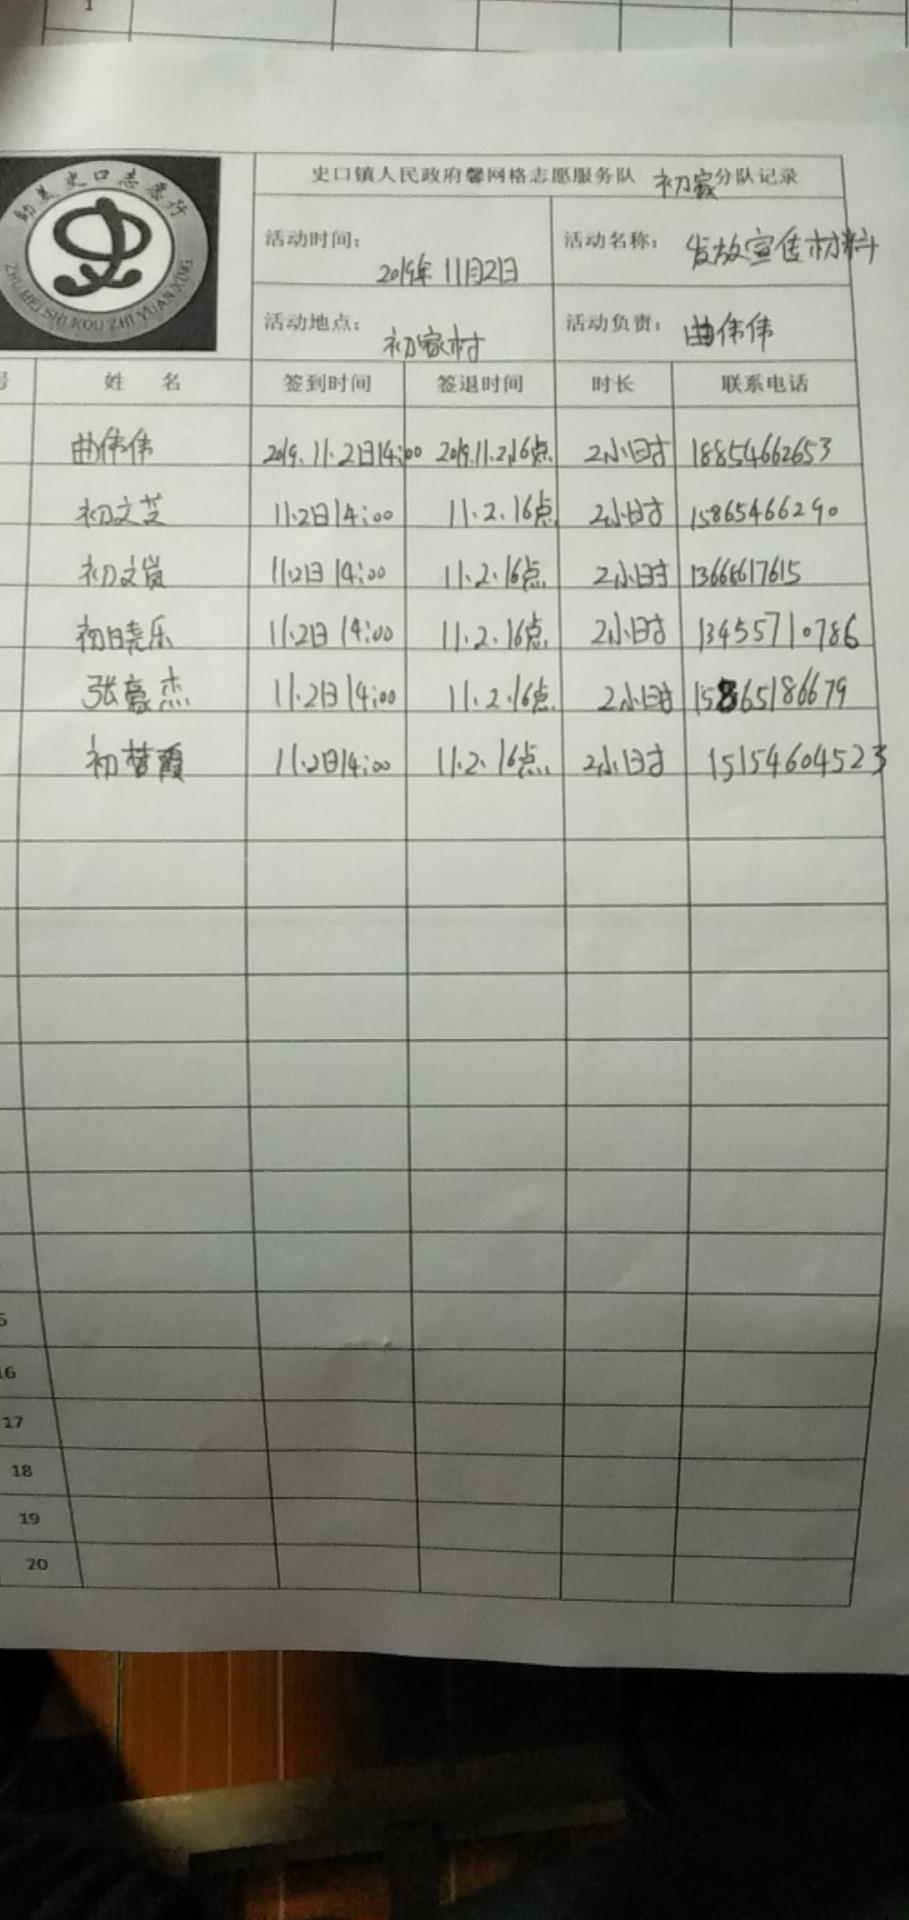 1
助美史口志愿行
ZHU MEI SHI KOU ZHI YUAN XING
史口镇人民政府馨网格志愿服务队 初家 分队记录
活动时间: 2019年 11月2日 活动名称: 发放宣传材料
活动地点: 初家村 活动负责: 曲伟伟
号 姓 名 签到时间 签退时间 时长 联系电话
曲伟伟 2019.11.2日14:00 2019.11.2.16点 2小时 18854662653
初文芝 11.2日14:00 11.2.16点 2小时 15865466290
初文岚 11.2日14:00 11.2.16点 2小时 13666617615
初晓乐 11.2日14:00 11.2.16点 2小时 13455710786
张豪杰 11.2日14:00 11.2.16点 2小时 15865186679
初 霞 11.2日14:00 11.2.16点 2小时 15154604523
16
17
18
19
20